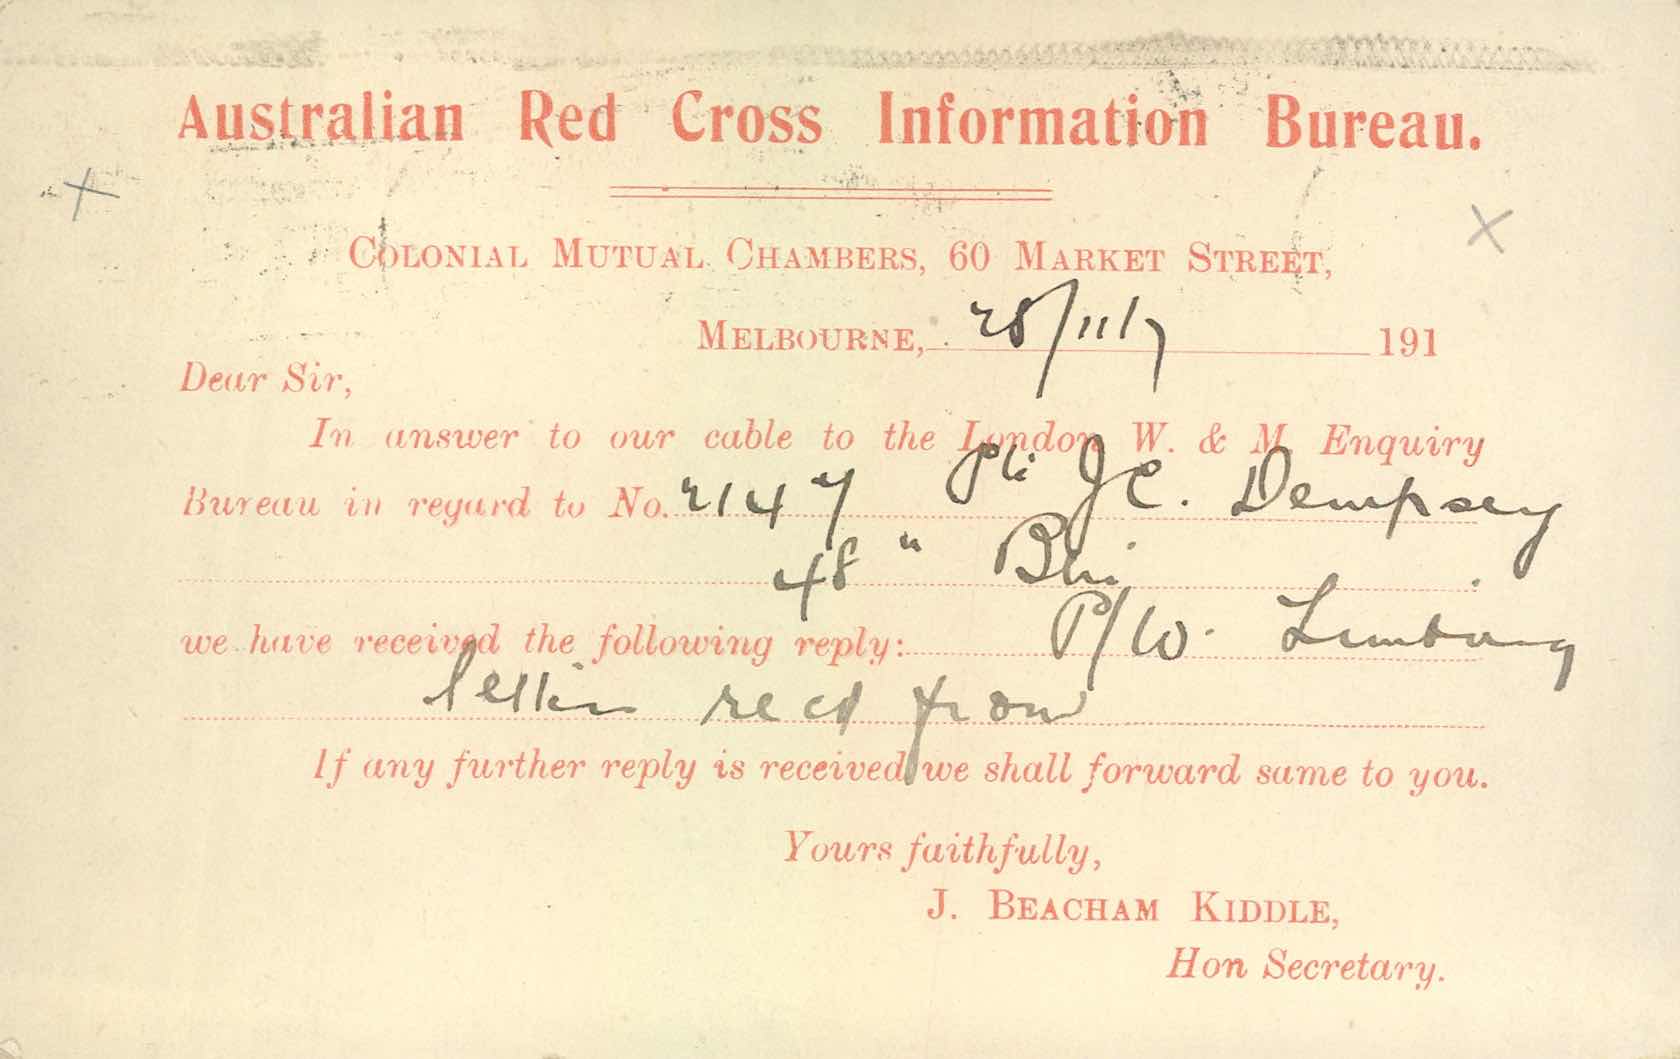 Australian Red Cross Information Bureau.
COLONIAL MUTUAL CHAMBERS, 60 MARKET STREET,
MELBOURNE, 28/11/17 191
Dear Sir,
In answer to our cable to the London W. & M. Enquiry
Bureau in regard to No. 2147 Pte J C. Dempsey
48 " Btn.
we have received the following reply: P/W. Limburg
letter recd from
If any further reply is received we shall forward same to you.
Yours faithfully,
J. BEACHAM KIDDLE,
Hon Secretary.